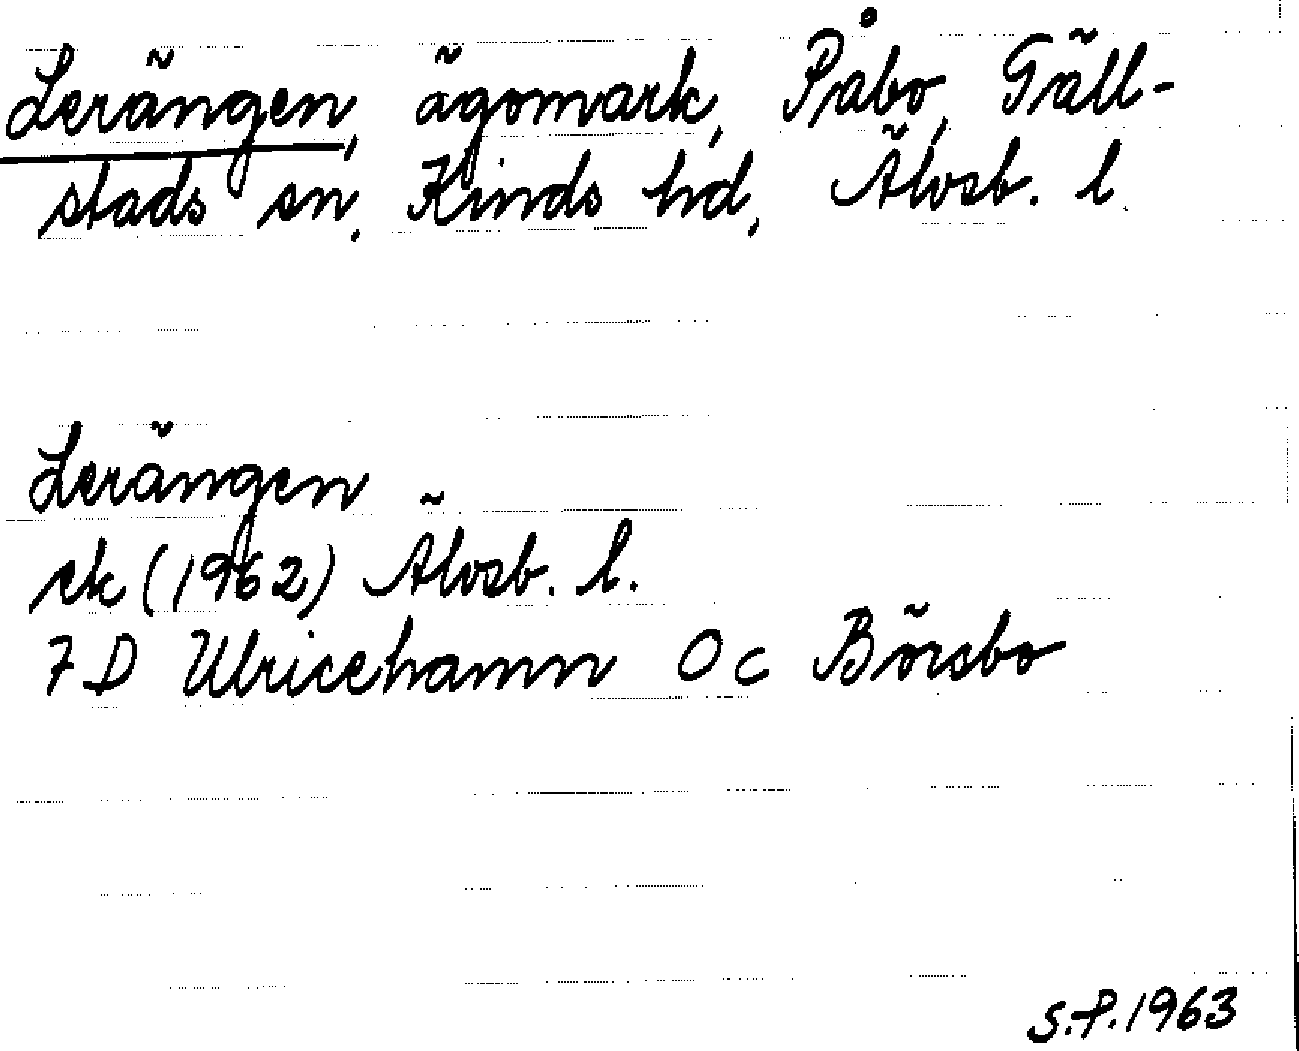 Lerängen, ägomark, Påbo, Gäll-
stads sn, Kinds hd, Älvsb. l.
Lerängen
ek (1962) Älvsb. l.
7 D Ulricehamn 0 c Börsbo
S.P. 1963